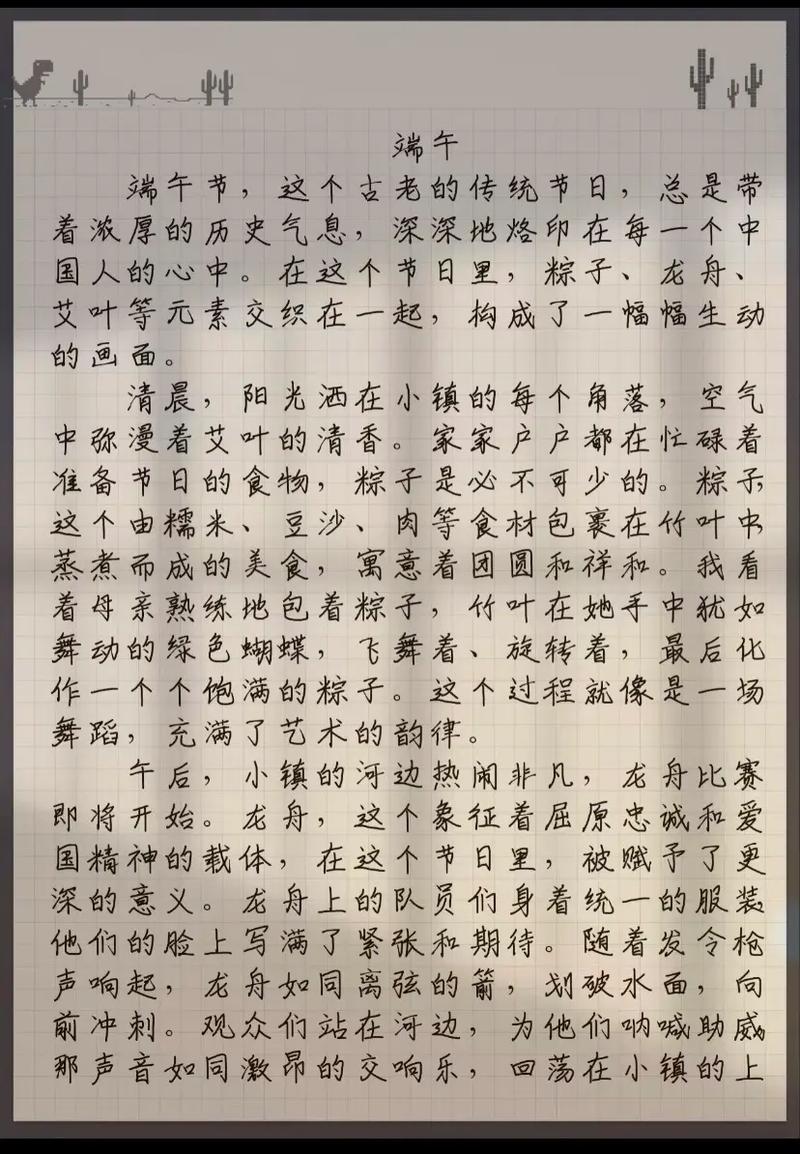 端午
端午节，这个古老的传统节日，总是带
着浓厚的历史气息，深深地烙印在每一个中
国人的心中。在这个节日里，粽子、龙舟、
艾叶等元素交织在一起，构成了一幅幅生动
的画面。
清晨，阳光洒在小镇的每个角落，空气
中弥漫着艾叶的清香。家家户户都在忙碌着
准备节日的食物，粽子是必不可少的。粽子，
这个由糯米、豆沙、肉等食材包裹在竹叶中，
蒸煮而成的美食，寓意着团圆和祥和。我看
着母亲熟练地包着粽子，竹叶在她手中犹如
舞动的绿色蝴蝶，飞舞着、旋转着，最后化
作一个个饱满的粽子。这个过程就像是一场
舞蹈，充满了艺术的韵律。
午后，小镇的河边热闹非凡，龙舟比赛
即将开始。龙舟，这个象征着屈原忠诚和爱
国精神的载体，在这个节日里，被赋予了更
深的意义。龙舟上的队员们身着统一的服装，
他们的脸上写满了紧张和期待。随着发令枪
声响起，龙舟如同离弦的箭，划破水面，向
前冲刺。观众们站在河边，为他们呐喊助威，
那声音如同激昂的交响乐，回荡在小镇的上